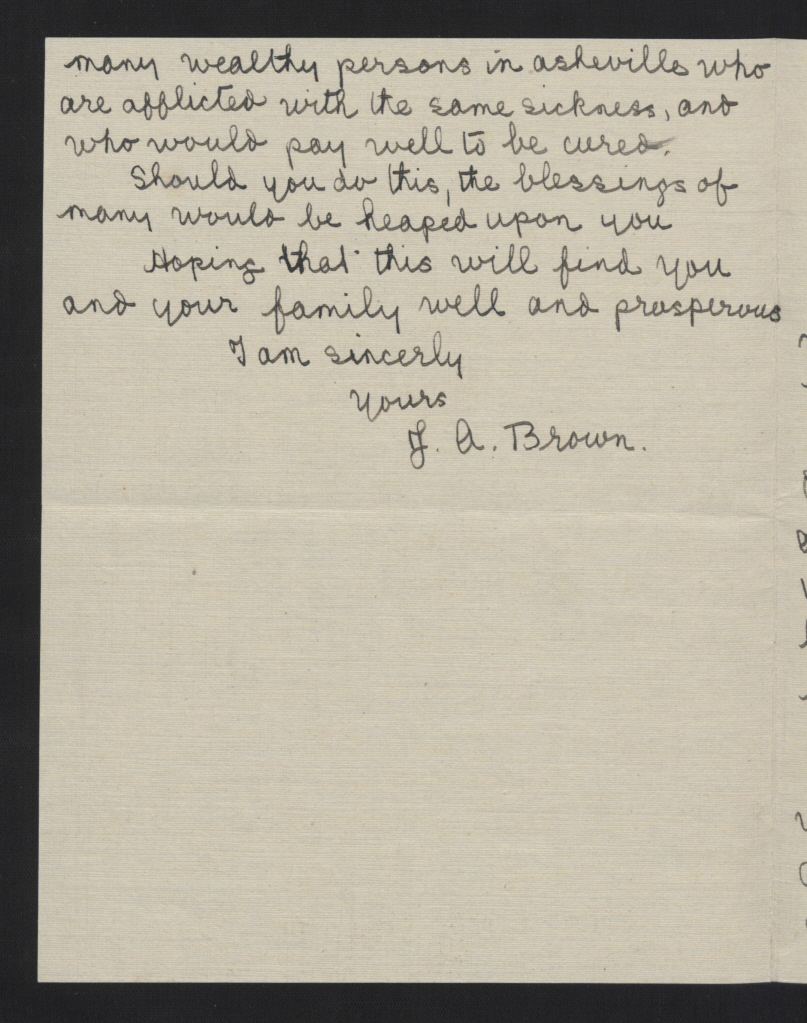 many wealthy persons in asheville who
are afflicted with the same sickness, and
who would pay well to be cured.
Should you do this, the blessings of
many would be heaped upon you
Hoping that this will find you
and your family well and prosperous
I am sincerly
yours
J. A. Brown.